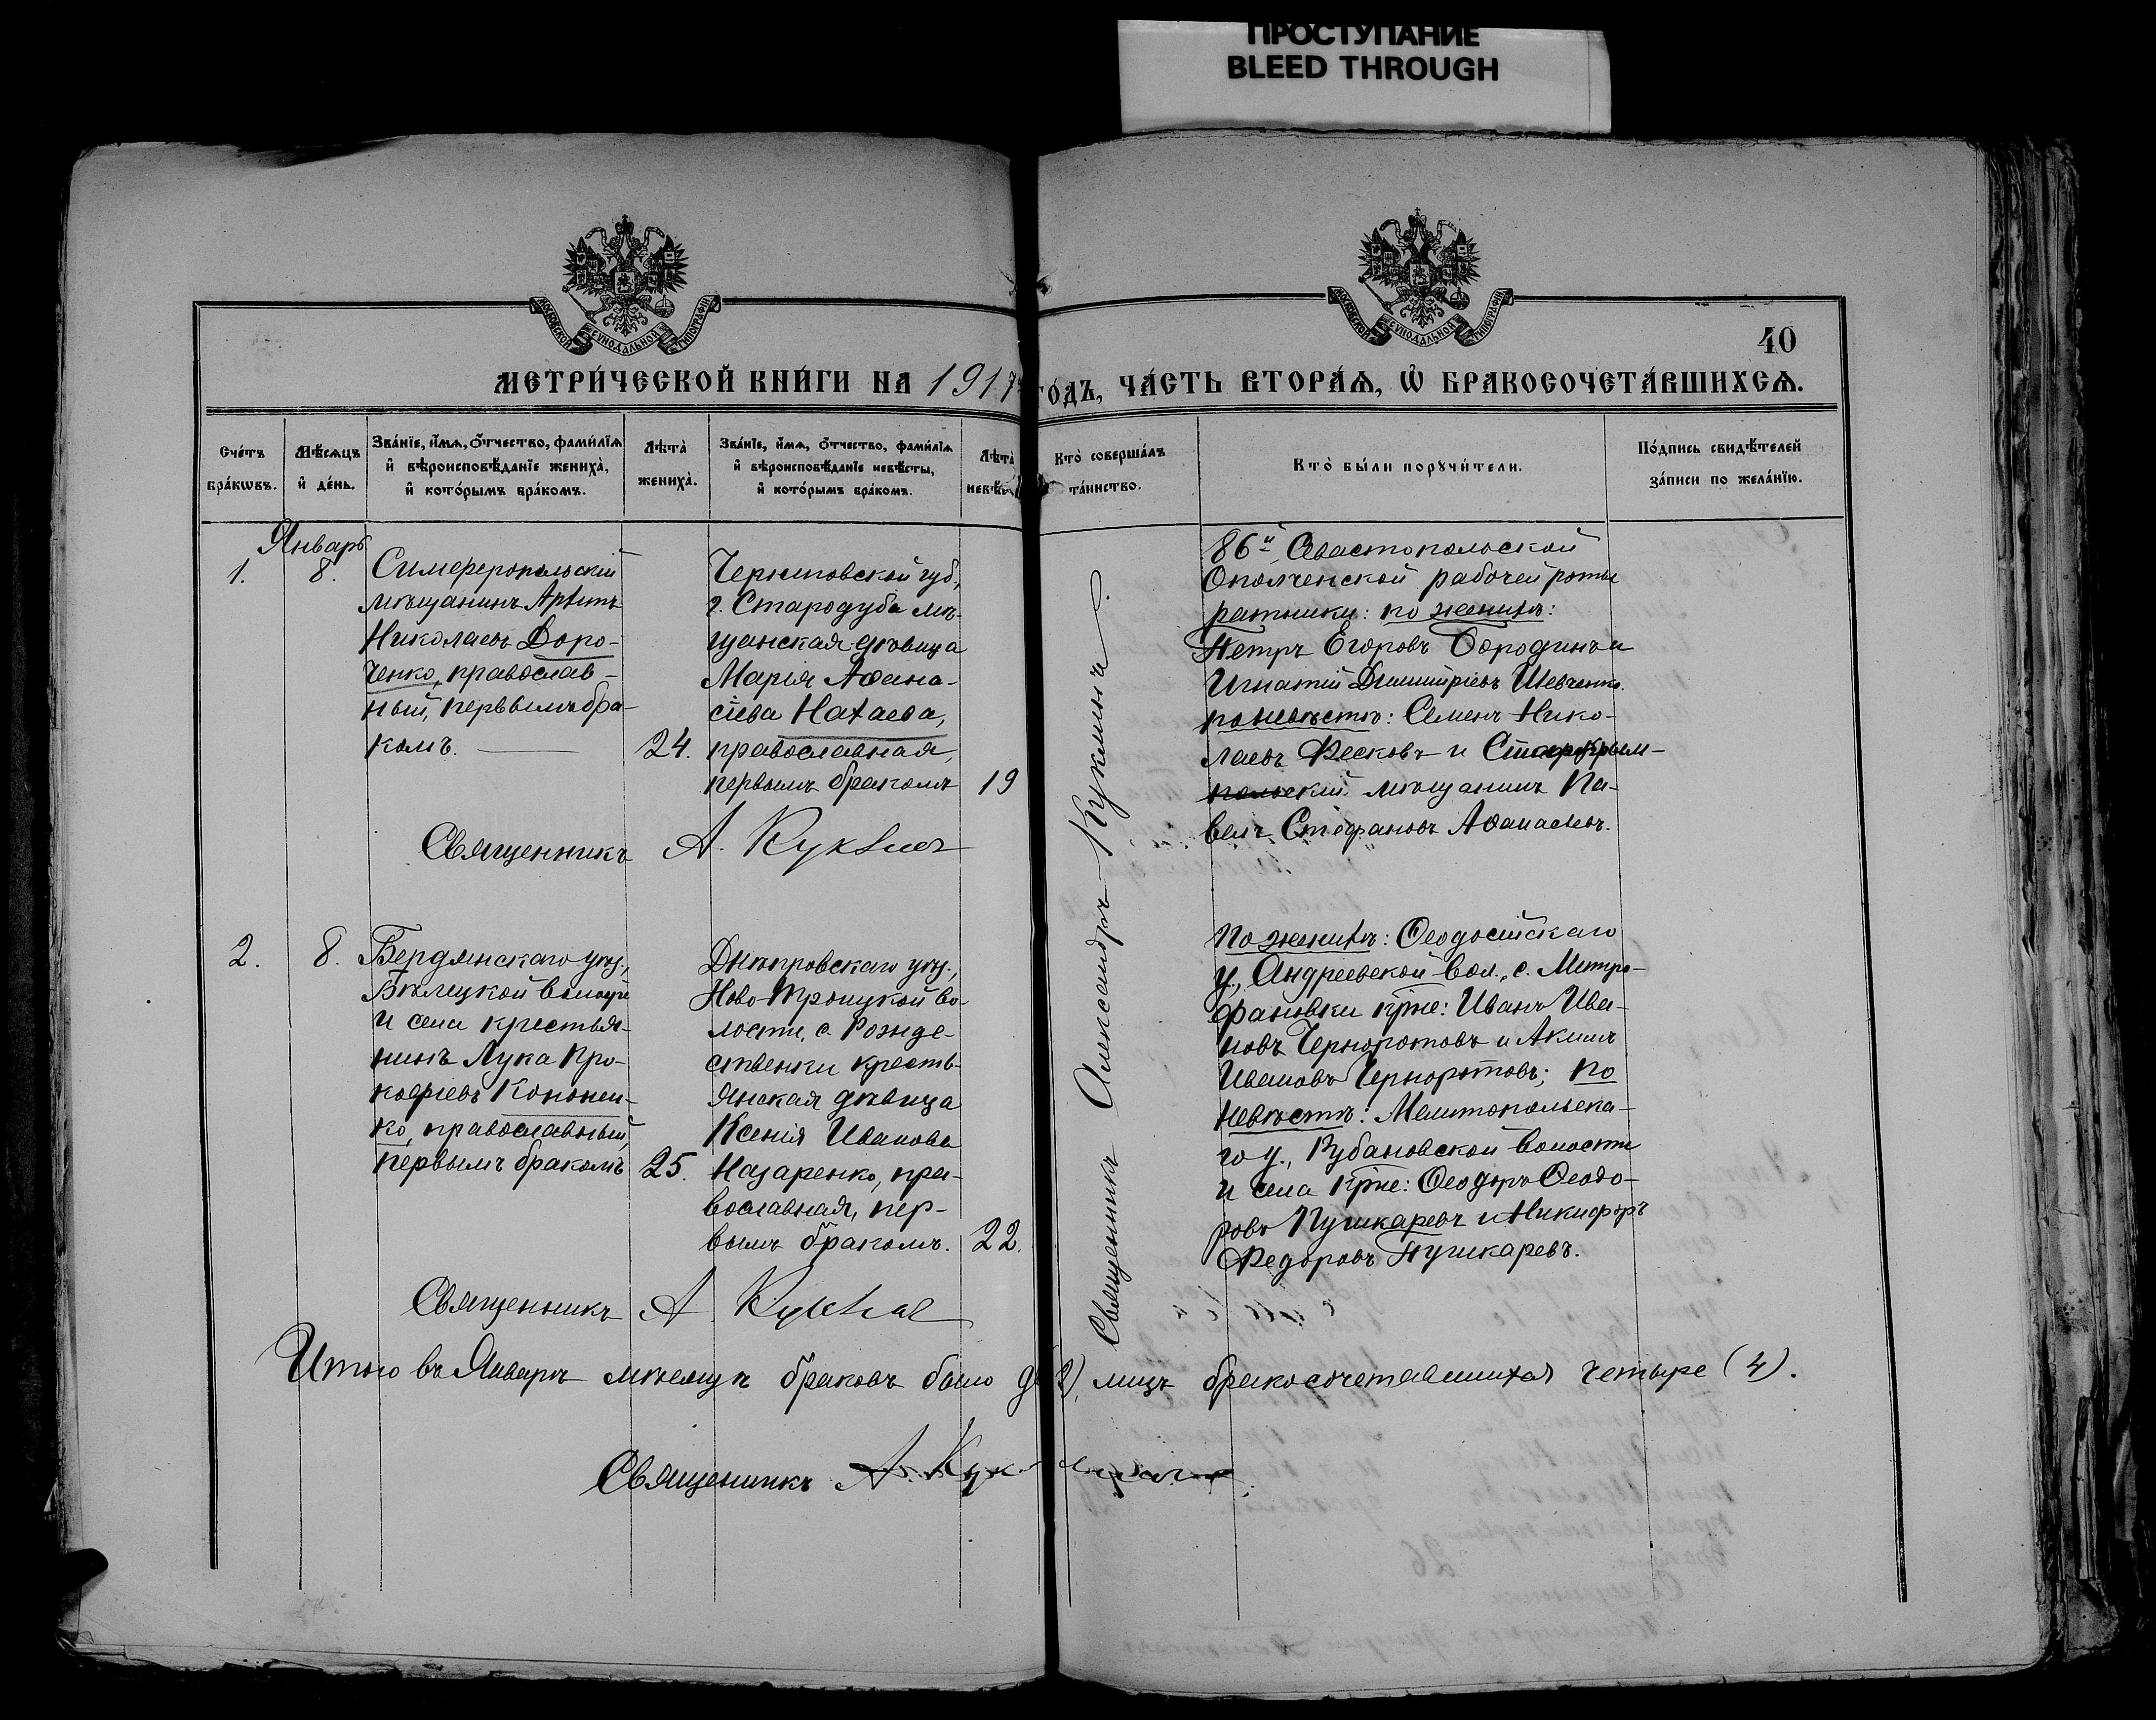 ПРОСТУПАНИЕ
BLEED THROUGH
МОСКОВСКОЙ СѴНОДАЛЬНОЙ ТИПОГРАФІИ
МОСКОВСКОЙ СѴНОДАЛЬНОЙ ТИПОГРАФІИ
40
МЕТРИ́ЧЕСКОЙ КНИ́ГИ НА 1917 ГО́ДЪ, ЧА́СТЬ ВТОРА́Ѧ, Ѡ҆ БРАКОСОЧЕТА́ВШИХСѦ.
Сче́тъ бра́кѡвъ.
Мѣ́сѧцъ и҆ де́нь.
Зва́нїе, и҆́мѧ, ѻ҆́тчество, фами́лїѧ
и҆ вѣроисповѣ́данїе жениха̀,
и҆ кото́рымъ бра́комъ.
Лѣта̀ жениха̀.
Зва́нїе, и҆́мѧ, ѻ҆́тчество, фами́лїѧ
и҆ вѣроисповѣ́данїе невѣ́сты,
и҆ кото́рымъ бра́комъ.
Лѣта̀
Кто̀ соверша́лъ та́инство.
Кто̀ бы́ли порꙋчи́тели.
По́дпись свидѣ́телей
за́писи по жела́нїю.
Январь
1.
8.
Симферопольскій
мѣщанинъ
Николаевъ Доро-
ченко, православ-
ный, первымъ бра-
комъ.
24.
Черниговской губ.,
г. Стародуба мѣ-
щанская дѣвица
Марія Аѳана-
сіева Нахаева,
православная,
первымъ бракомъ
19
86й Севастопольской
Ополченской рабочей роты
ратники: по женихѣ:
Петръ Егоровъ Бородинъ и
Игнатій Димитріевъ Шевченко.
по невѣстѣ: Семенъ Нико-
лаевъ Фесковъ и Старокрым-
скій мѣщанинъ Па-
велъ Стефановъ Аѳанасьевъ.
Священникъ А. Куклинъ
Священникъ Александръ Куклинъ.
2.
8.
Бердянскаго уѣз.,
волости
и села крестья-
нинъ Лука Про-
кофіевъ Кононен-
ко, православный,
первымъ бракомъ
25.
Днѣпровскаго уѣз.,
Ново-Троицкой во-
лости, с. Рожде-
ственки кресть-
янская дѣвица
Ксенія Иванова
Назаренко, пра-
вославная, пер-
вымъ бракомъ.
22.
По женихѣ: Ѳеодосійскаго
у., Андреевской вол., с. Митро-
фановки кр-не: Иванъ Ива-
новъ Черноротовъ и Акимъ
Ивановъ Черноротовъ; по
невѣстѣ: Мелитопольска-
го у., Рубановской волости
и села кр-не: Ѳеодоръ Ѳеодо-
ровъ Пушкаревъ и Никифоръ
Федоровъ Пушкаревъ.
Священникъ А. Куклинъ
Итого въ Январѣ мѣсяцѣ браковъ было 2), лицъ бракосочетавшихся четыре (4).
Священникъ А. Куклинъ